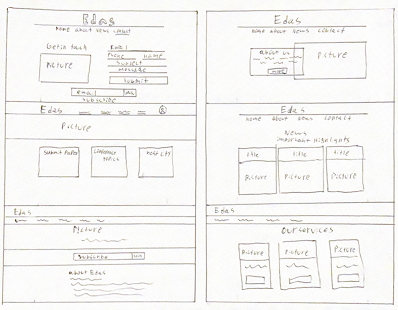 Edas
Home about news contact
Get in touch
Email
Phone name
Picture
Subject
message
Submit
email
Subscribe
Edas
Picture
Submit Paper
Conference
topics
Edas
Picture
Subscribe
About Edas
Edas
Home about news contact
about us
Picture
Edas
home about news contact
News
important highlights
title title title
Picture Picture Picture
Edas
Our services
Picture Picture Picture